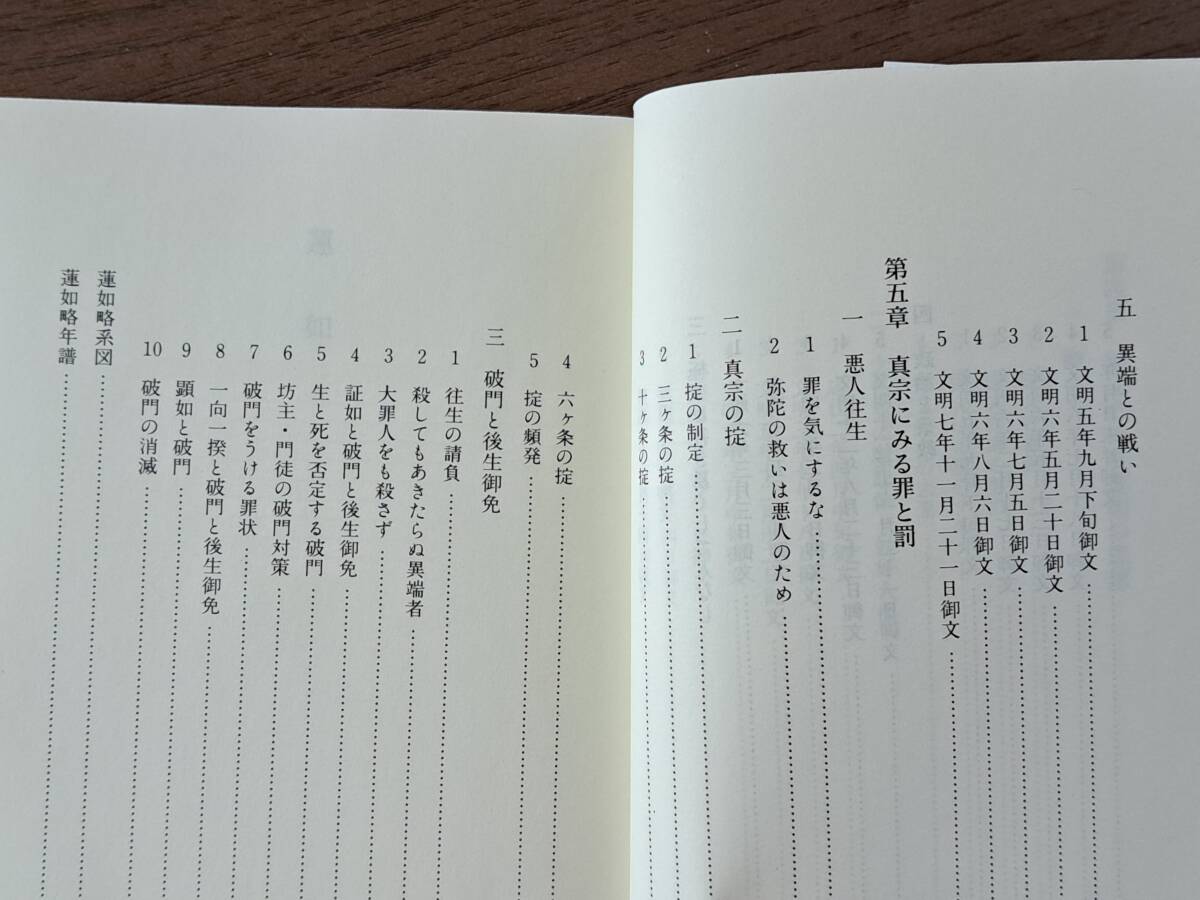 五 異端との戦い
1 文明五年九月下旬御文
2 文明六年五月二十日御文
3 文明六年七月五日御文
4 文明六年八月六日御文
5 文明七年十一月二十一日御文
第五章 真宗にみる罪と罰
一 悪人往生
1 罪を気にするな
2 弥陀の救いは悪人のため
二 真宗の掟
1 掟の制定
2 三ヶ条の掟
3 十ヶ条の掟
4 六ヶ条の掟
5 掟の頻発
三 破門と後生御免
1 往生の請負
2 殺してもあきたらぬ異端者
3 大罪人をも殺さず
4 証如と破門と後生御免
5 生と死を否定する破門
6 坊主・門徒の破門対策
7 破門をうける罪状
8 一向一揆と破門と後生御免
9 顕如と破門
10 破門の消滅
蓮如略系図
蓮如略年譜